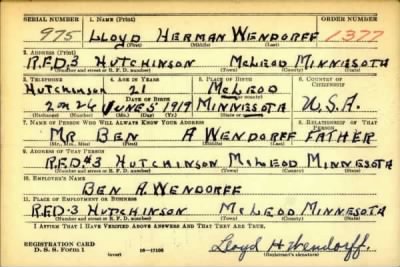 SERIAL NUMBER 1. NAME (Print) ORDER NUMBER
975 LLOYD HERMAN WENDORFF 1377
(First) (Middle) (Last)
2. ADDRESS (Print)
R.F.D.3 HUTCHINSON McLEOD MINNESOTA
(Number and street or R. F. D. number) (Town) (County) (State)
3. TELEPHONE 4. AGE IN YEARS 5. PLACE OF BIRTH 6. COUNTRY OF CITIZENSHIP
HUTCHINSON 21 McLEOD
DATE OF BIRTH (Town or county)
2 on 26 JUNE 5 1919 MINNESOTA U.S.A.
(Exchange) (Number) (Mo.) (Day) (Yr.) (State or country)
7. NAME OF PERSON WHO WILL ALWAYS KNOW YOUR ADDRESS 8. RELATIONSHIP OF THAT PERSON
MR BEN A WENDORFF FATHER
(Mr., Mrs., Miss) (First) (Middle) (Last)
9. ADDRESS OF THAT PERSON
R.F.D.#3 HUTCHINSON McLEOD MINNESOTA
(Number and street or R. F. D. number) (Town) (County) (State)
10. EMPLOYER'S NAME
BEN A. WENDORFF
11. PLACE OF EMPLOYMENT OR BUSINESS
R.F.D-3 HUTCHINSON McLEOD MINNESOTA
(Number and street or R. F. D. number) (Town) (County) (State)
I AFFIRM THAT I HAVE VERIFIED ABOVE ANSWERS AND THAT THEY ARE TRUE.
REGISTRATION CARD
D. S. S. Form 1 (over) Lloyd H Wendorff.
(Registrant's signature)